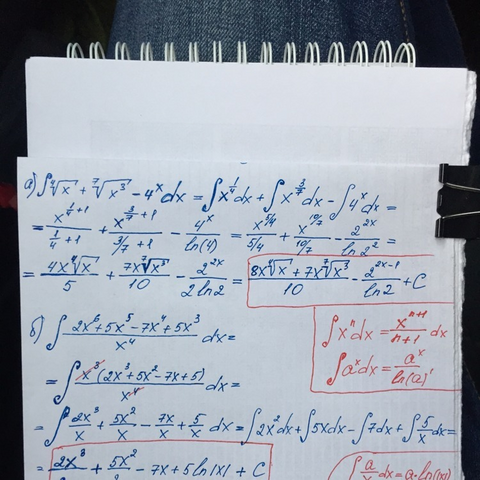 а) ∫ ⁴√x + ⁷√x³ - 4ˣ dx = ∫ x^(1/4) dx + ∫ x^(3/7) dx - ∫ 4ˣ dx =
= x^(1/4+1)/(1/4+1) + x^(3/7+1)/(3/7+1) - 4ˣ/ln(4) = x^(5/4)/(5/4) + x^(10/7)/(10/7) - 2^(2x)/ln 2² =
= 4x ⁴√x/5 + 7x ⁷√x³/10 - 2^(2x)/(2 ln 2) = (8x ⁴√x + 7x ⁷√x³)/10 - 2^(2x-1)/ln 2 + C
б) ∫ (2x⁶ + 5x⁵ - 7x⁴ + 5x³)/x⁴ dx =
∫ xⁿ dx = x^(n+1)/(n+1) dx
∫ aˣ dx = aˣ/ln(a)'
= ∫ x³(2x³ + 5x² - 7x + 5)/x⁴ dx =
= ∫ 2x³/x + 5x²/x - 7x/x + 5/x dx = ∫ 2x² dx + ∫ 5x dx - ∫ 7 dx + ∫ 5/x dx =
= 2x³ + 5x² - 7x + 5 ln|x| + C
∫ a/x dx = a·ln|x|